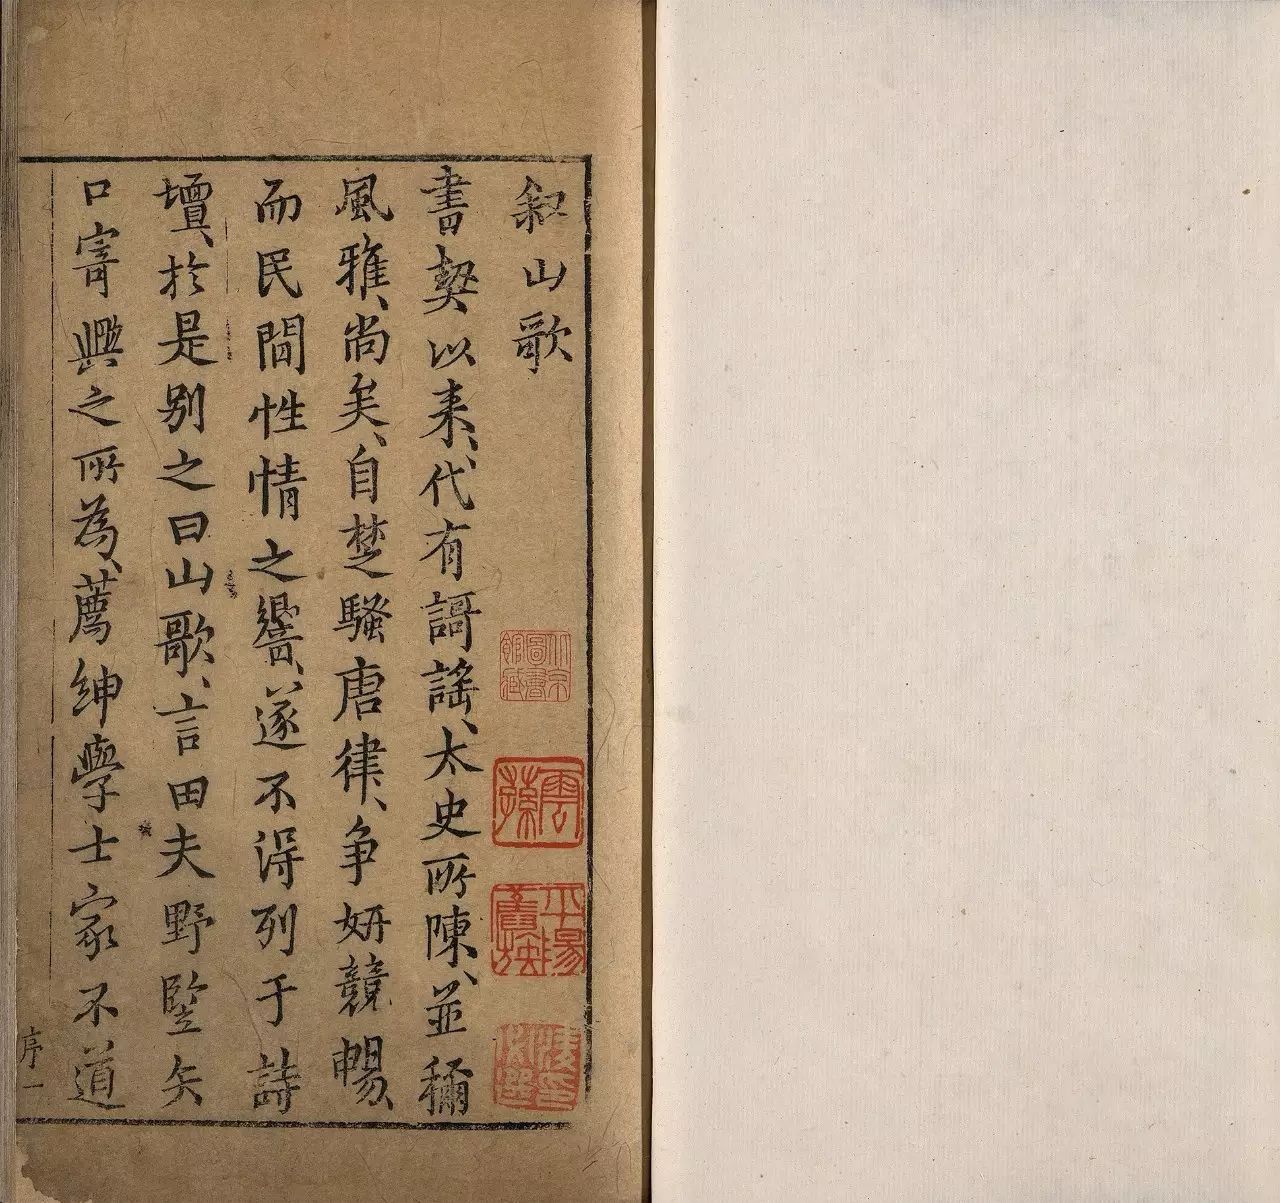 叙山歌
書契以来、代有謌謡、太史所陳、並稱
風雅、尚矣、自楚騷唐律、争妍競暢、
而民間性情之響、遂不得列于詩
壇、於是别之曰山歌、言田夫野竪矢
口寄興之所為、薦紳學士家不道
序一
北京圖書館藏